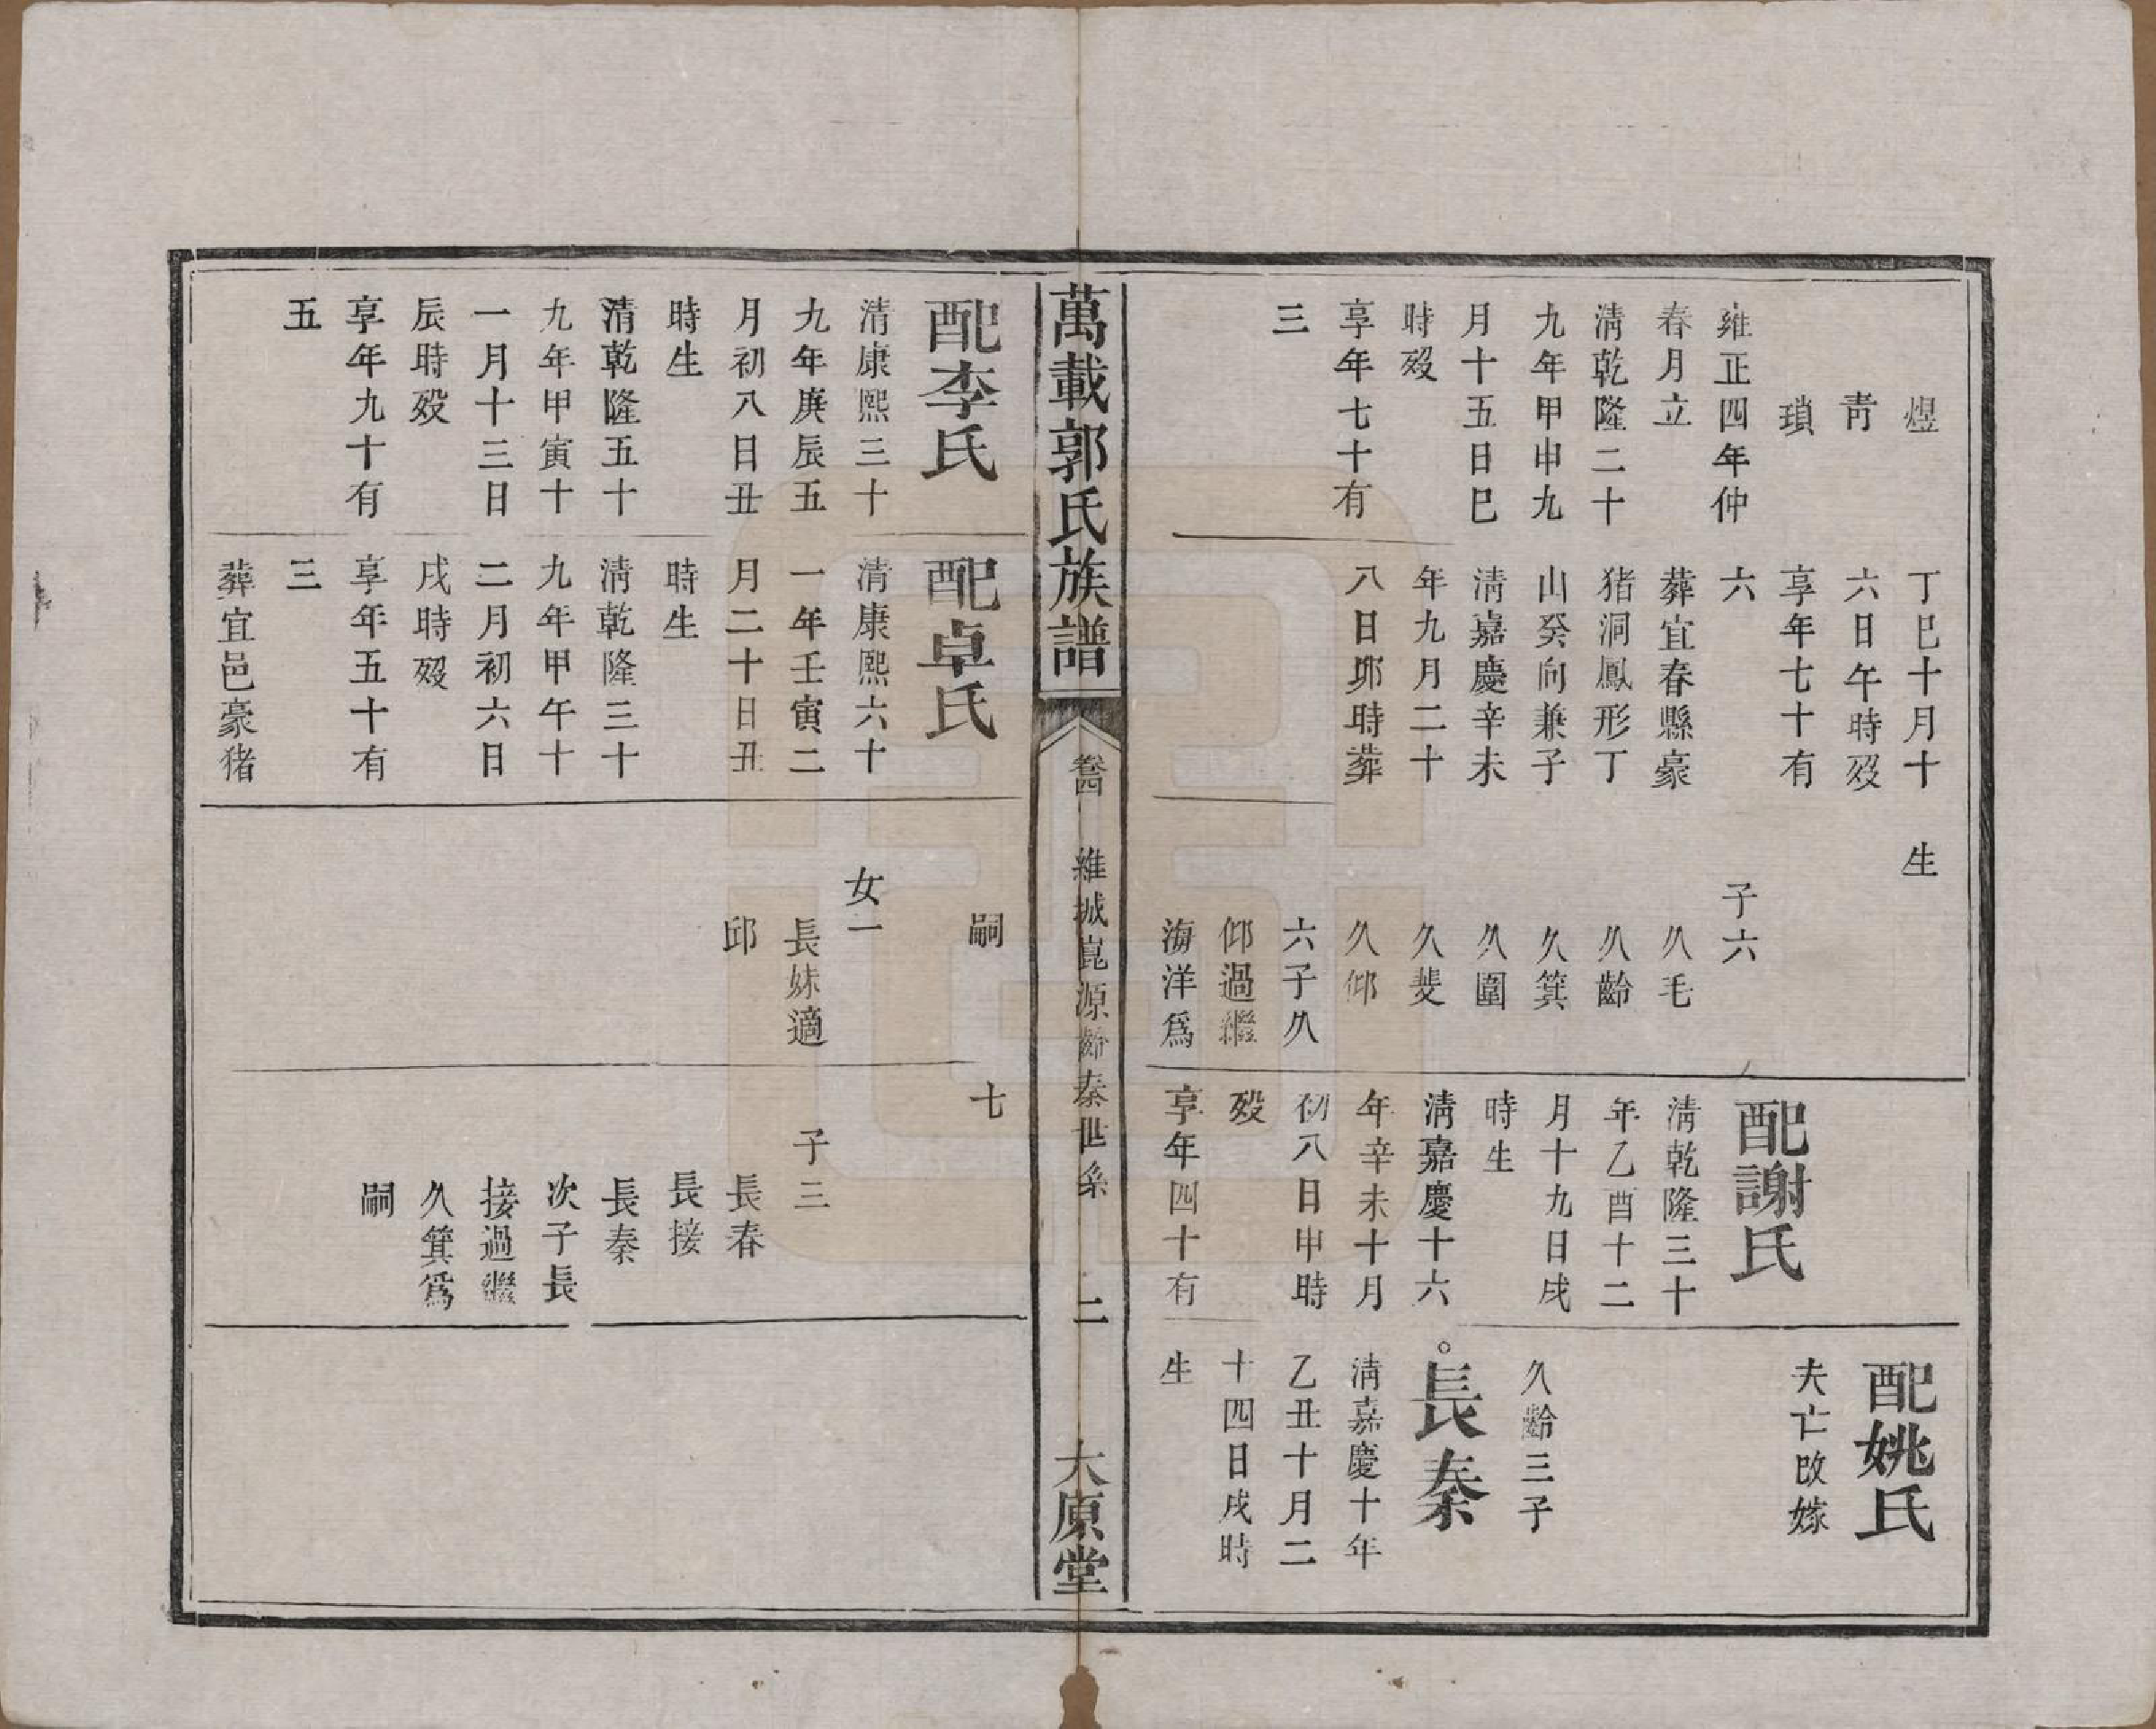 煜
靑
瑣
雍正四年仲
春月立
淸乾隆二十
九年甲申九
月十五日巳
時歿
享年七十有
三
丁巳十月十
六日午時歿
享年七十有
六
葬宜春縣豪
猪洞鳳形丁
山癸向兼子
淸嘉慶辛未
年九月二十
八日夘時葬
生
子六
久毛
久齡
久箕
久圍
久斐
久仰
六子久
仰過繼
海洋爲
配謝氏
淸乾隆三十
年乙酉十二
月十九日戌
時生
淸嘉慶十六
年辛未十月
初八日申時
歿
享年四十有
配姚氏
夫亡改嫁
久齡三子
長秦
淸嘉慶十年
乙丑十月二
十四日戌時
生
萬載郭氏族譜
卷四
維城崑源齡秦世系
二
太原堂
配李氏
淸康熙三十
九年庚辰五
月初八日丑
時生
淸乾隆五十
九年甲寅十
一月十三日
辰時歿
享年九十有
五
配卓氏
淸康熙六十
一年壬寅二
月二十日丑
時生
淸乾隆三十
九年甲午十
二月初六日
戌時歿
享年五十有
三
葬宜邑豪猪
嗣
女一
長妹適
邱
七
子三
長春
長接
長秦
次子長
接過繼
久箕爲
嗣